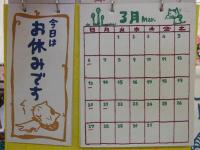 今日は
お休みです
3月 Mar.
日 月 火 水 木 金 土
1 2 3 4 5
6 7 8 9 10 11 12
13 14 15 16 17 18 19
20 21 22 23 24 25 26
27 28 29 30 31